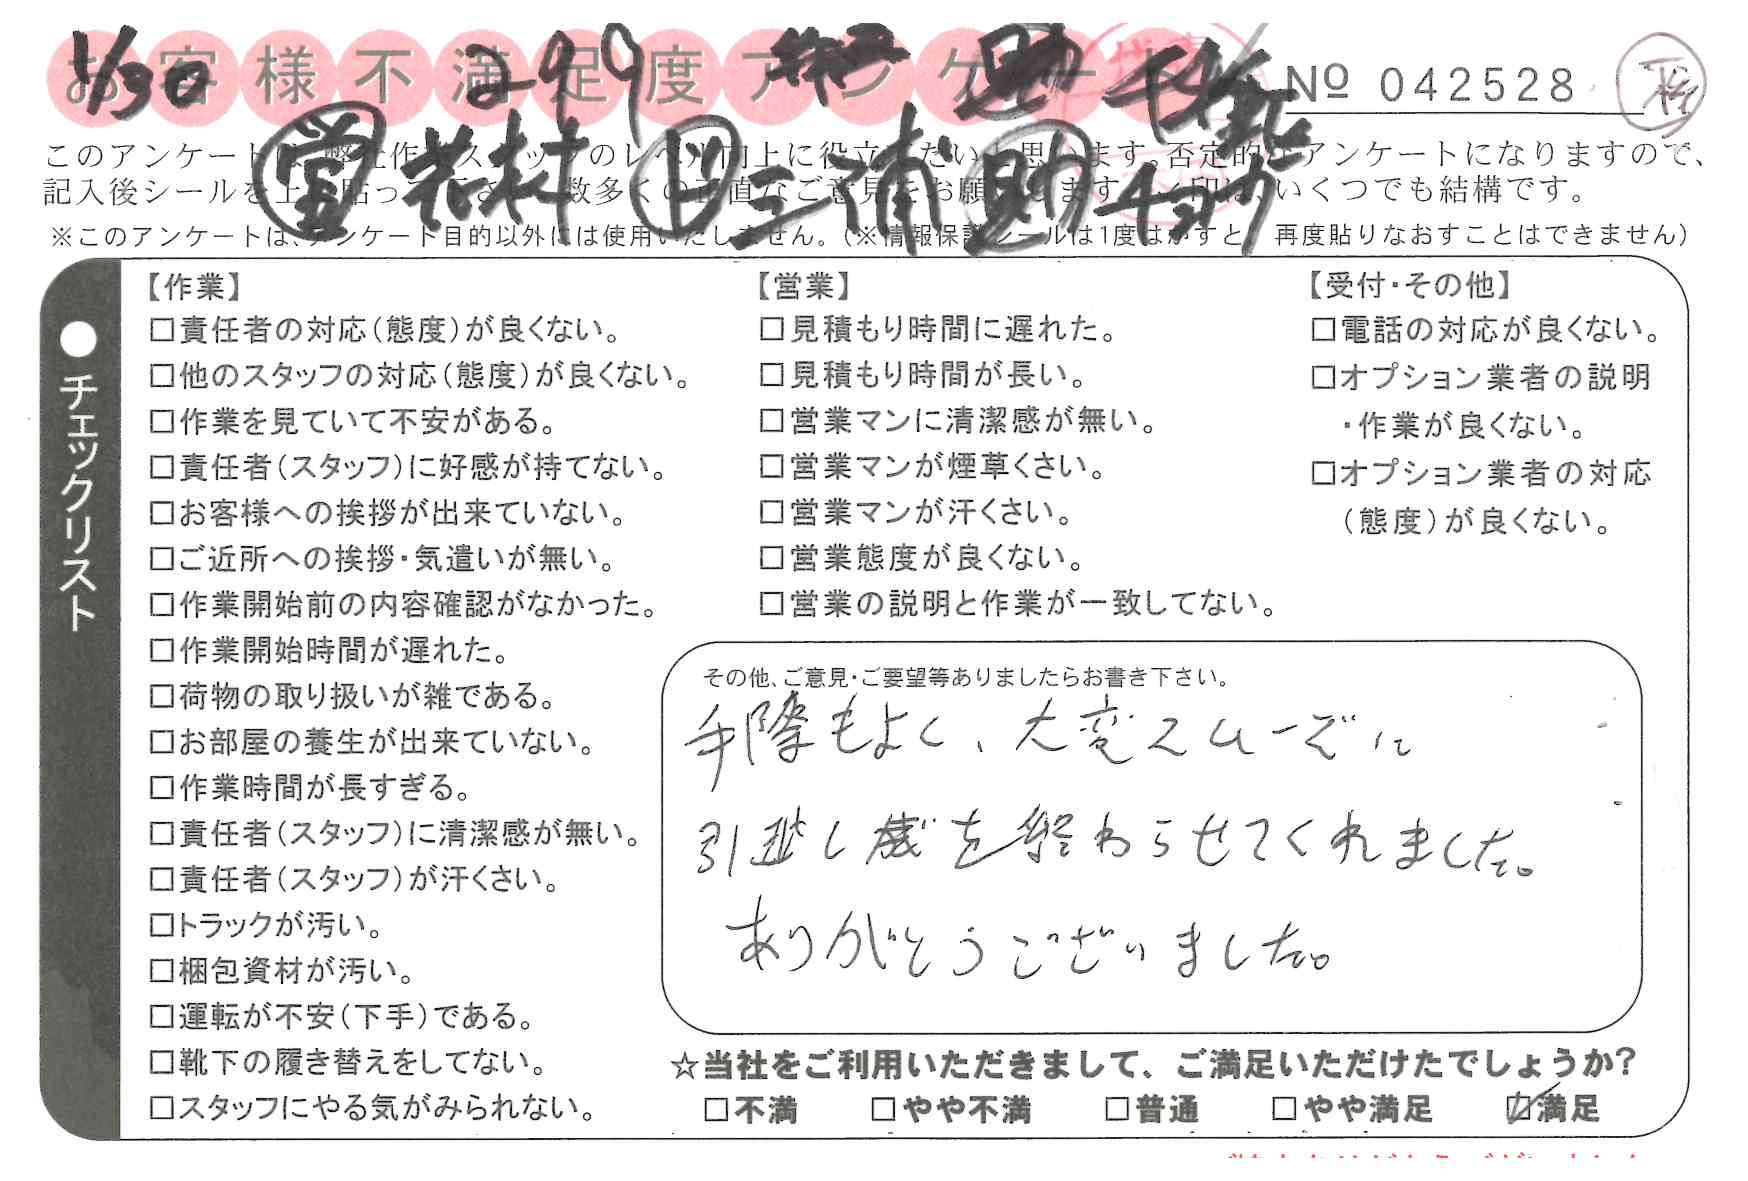 お客様不満足度アンケート
1/30 299
No 042528
営 若林 ド 三浦 助
このアンケートは、弊社作業スタッフのレベル向上に役立てたいと思います。否定的なアンケートになりますので、
記入後シールを上に貼って下さい。数多くの正直なご意見をお願いします。レ印は、いくつでも結構です。
※このアンケートは、アンケート目的以外には使用いたしません。(※情報保護シールは1度はがすと、再度貼りなおすことはできません)
●チェックリスト
【作業】
□責任者の対応(態度)が良くない。
□他のスタッフの対応(態度)が良くない。
□作業を見ていて不安がある。
□責任者(スタッフ)に好感が持てない。
□お客様への挨拶が出来ていない。
□ご近所への挨拶・気遣いが無い。
□作業開始前の内容確認がなかった。
□作業開始時間が遅れた。
□荷物の取り扱いが雑である。
□お部屋の養生が出来ていない。
□作業時間が長すぎる。
□責任者(スタッフ)に清潔感が無い。
□責任者(スタッフ)が汗くさい。
□トラックが汚い。
□梱包資材が汚い。
□運転が不安(下手)である。
□靴下の履き替えをしてない。
□スタッフにやる気がみられない。
【営業】
□見積もり時間に遅れた。
□見積もり時間が長い。
□営業マンに清潔感が無い。
□営業マンが煙草くさい。
□営業マンが汗くさい。
□営業態度が良くない。
□営業の説明と作業が一致してない。
【受付・その他】
□電話の対応が良くない。
□オプション業者の説明
・作業が良くない。
□オプション業者の対応
(態度)が良くない。
その他、ご意見・ご要望等ありましたらお書き下さい。
手際もよく、大変スムーズに
引越し歳を終わらせてくれました。
ありがとうございました。
☆当社をご利用いただきまして、ご満足いただけたでしょうか?
□不満 □やや不満 □普通 □やや満足 ☑満足